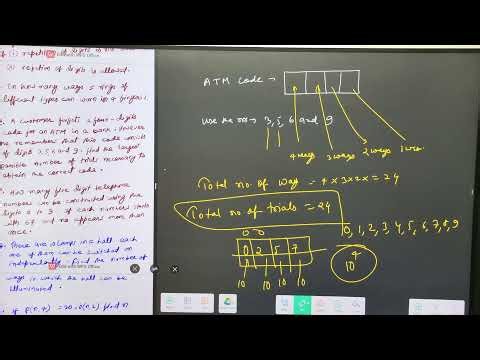 (i) repetition of digits is not
(ii) repetition of digits is allowed.
In how many ways 5 rings of
different types can worn in 4 fingers?
A customer forgets a four-digits
code for an ATM in a bank. However
he remembers that this code consists
of digits 3, 5, 6 and 9. Find the largest
possible number of trials necessary to
obtain the correct code.
How many five digit telephone
numbers can be constructed using the
digits 0 to 9 if each number starts
with 67 and no appears more than
once.
There are lamps in a hall. each
one of them can be switched on
independently. Find the number of
ways in which the hall can be
illuminated.
If P(n, 4) = 20 P(n, 2), find n
ATM code →
Use the nos → 3, 5, 6 and 9
4 ways 3 ways 2 ways 1 way
Total no. of Ways = 4 x 3 x 2 x = 24
Total no of trials = 24
0-0
0 2 5 7
0, 1, 2, 3, 4, 5, 6, 7, 8, 9
10 10 10 10
10⁴